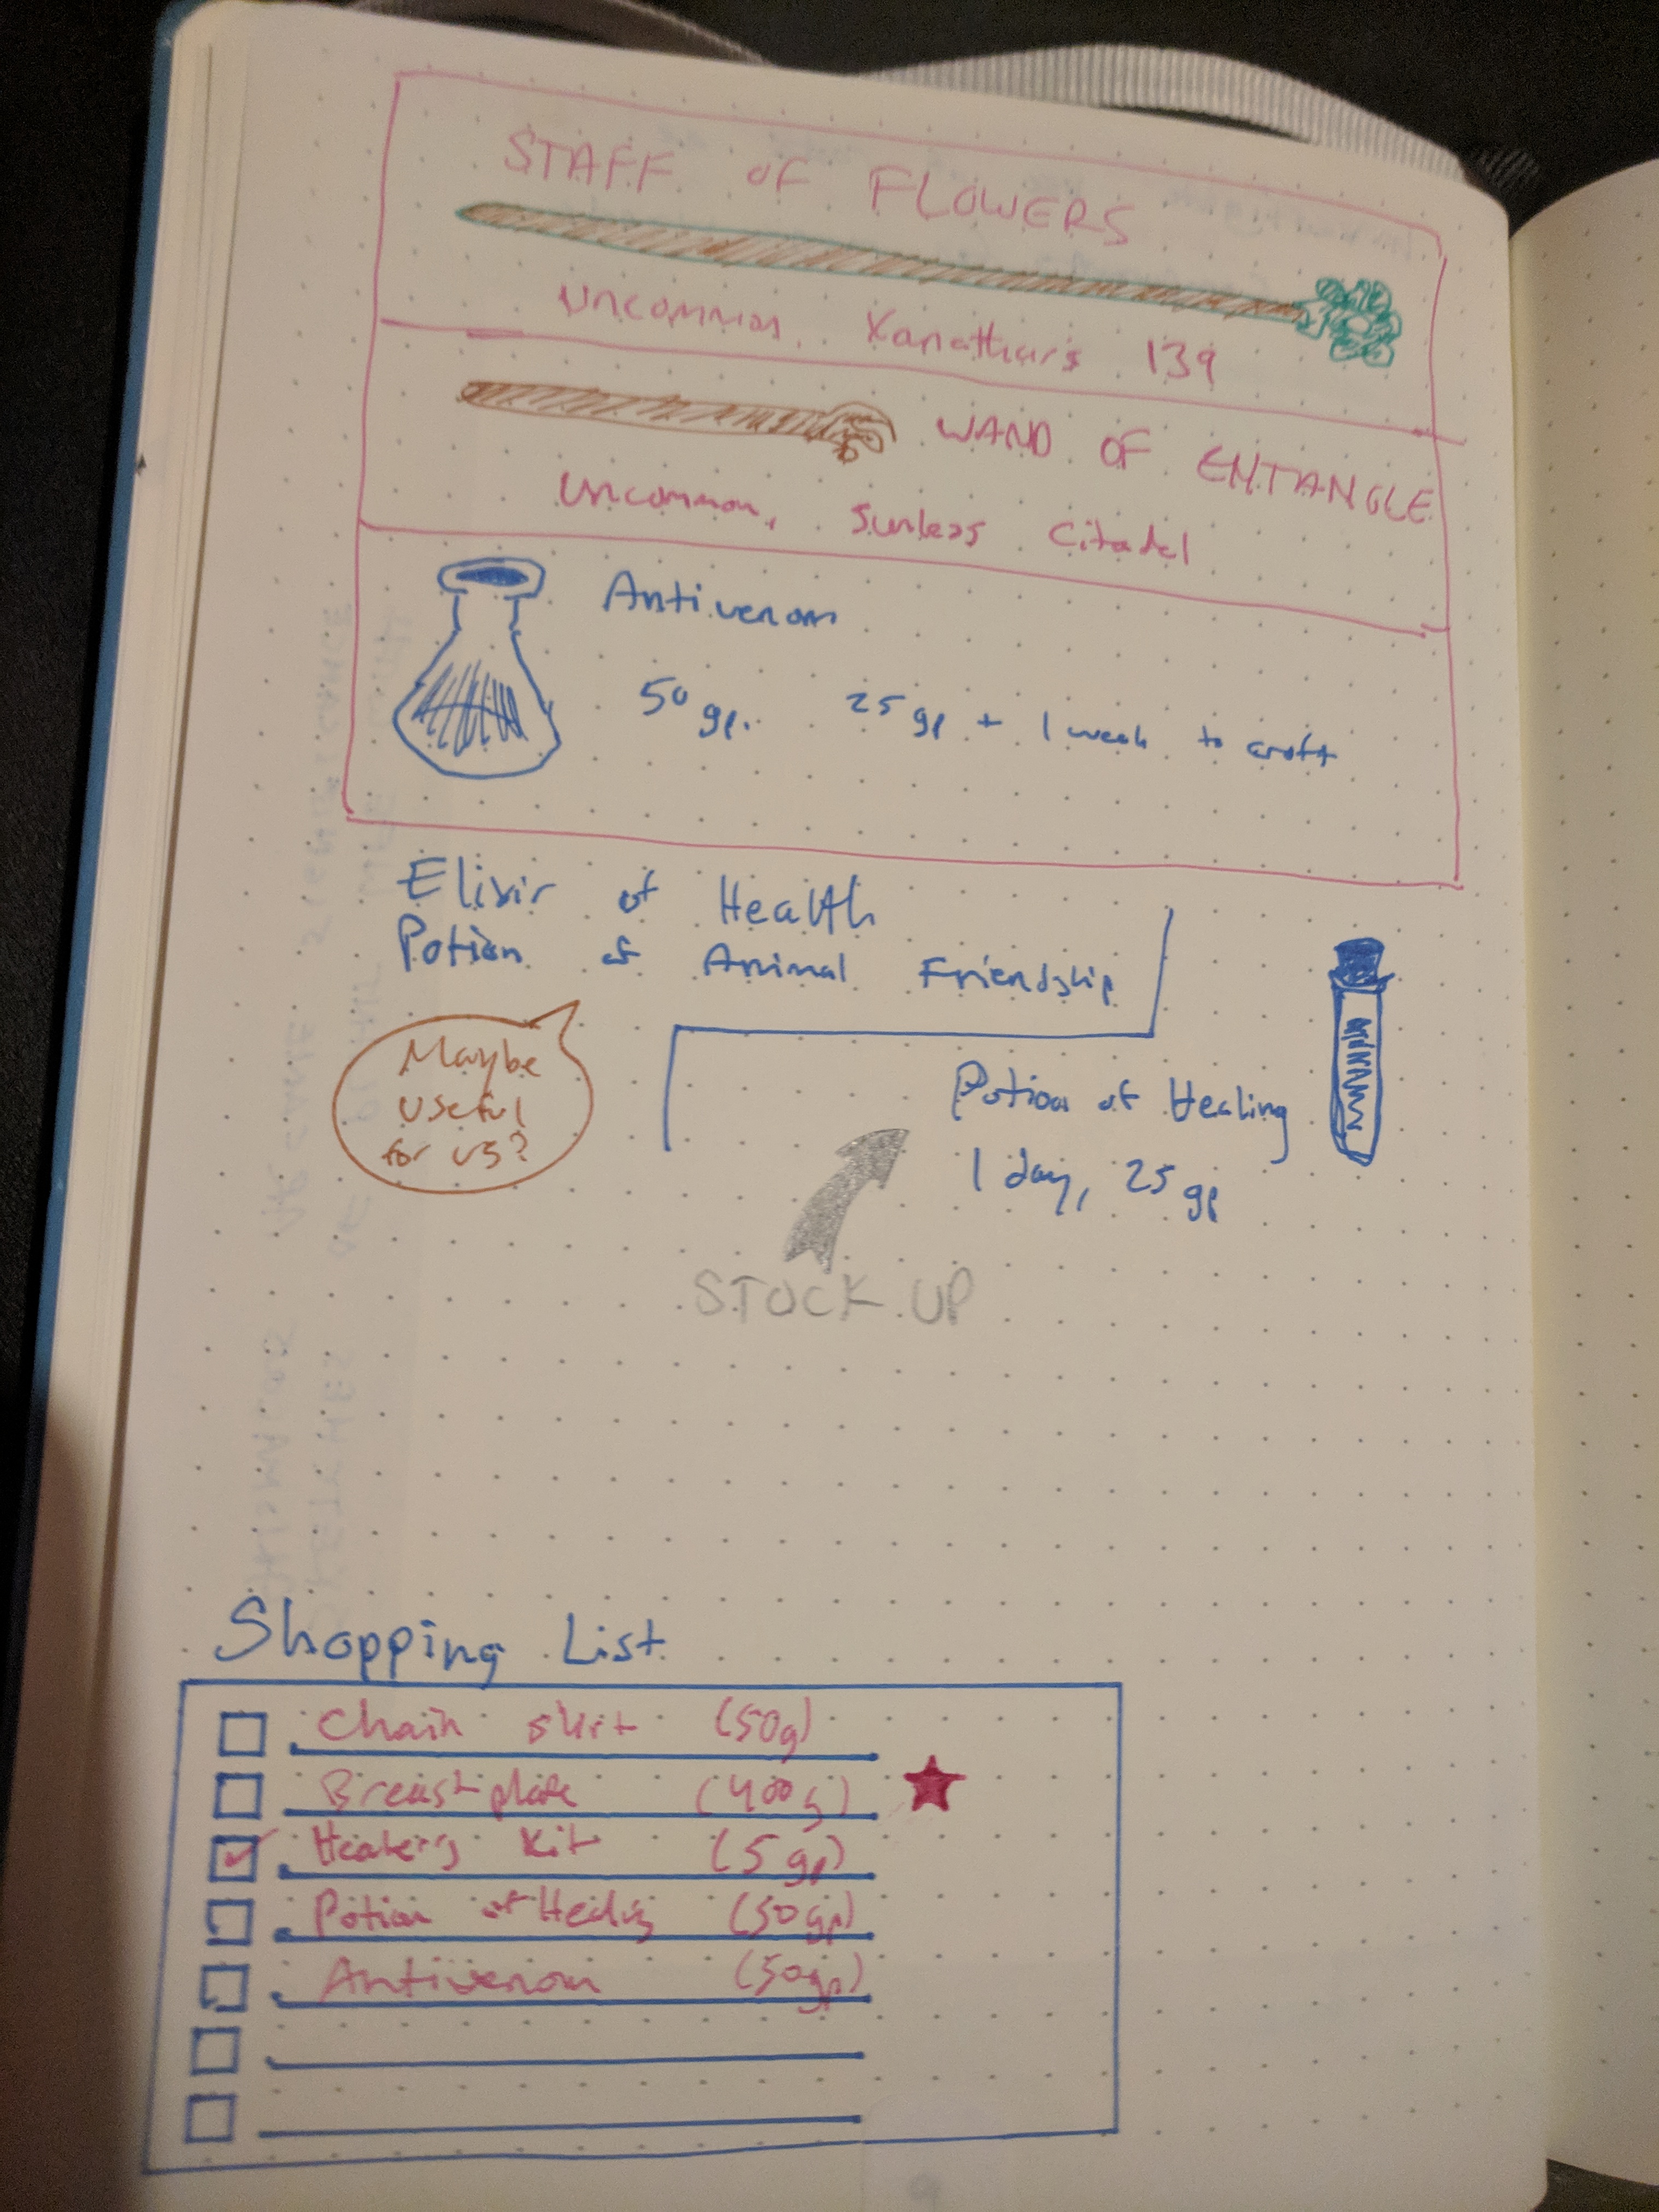 STAFF OF FLOWERS
Uncommon, Xanathar's 139
WAND OF ENTANGLE
Uncommon, Sunless Citadel
Antivenom
50 gp. 25 gp + 1 week to craft
Elixir of Health
Potion of Animal Friendship
Maybe
useful
for us?
Potion of Healing
1 day, 25 gp
STOCK UP
Shopping List
Chain shirt (50g)
Breastplate (400g)
Healer's Kit (5 gp)
Potion of Healing (50gp)
Antivenom (50gp)